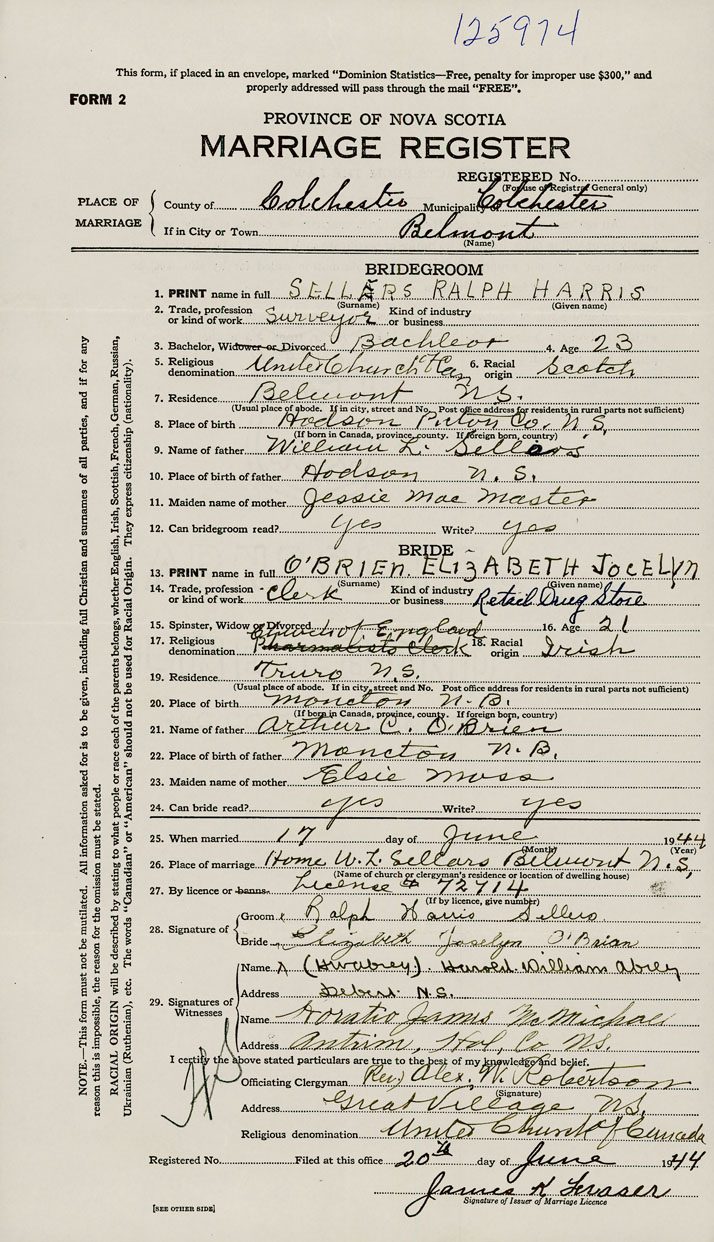 125974
This form, if placed in an envelope, marked "Dominion Statistics—Free, penalty for improper use $300," and
properly addressed will pass through the mail "FREE".
FORM 2
PROVINCE OF NOVA SCOTIA
MARRIAGE REGISTER
REGISTERED No.
(For use of Registrar General only)
PLACE OF MARRIAGE
County of Colchester Municipality of Colchester
If in City or Town Belmont
(Name)
BRIDEGROOM
1. PRINT name in full SELLERS RALPH HARRIS
(Surname) (Given name)
2. Trade, profession or kind of work Surveyor Kind of industry or business
3. Bachelor, Widower or Divorced Bachleor 4. Age 23
5. Religious denomination United Church 6. Racial origin Scotch
7. Residence Belmont N.S.
(Usual place of abode. If in city, street and No. Post office address for residents in rural parts not sufficient)
8. Place of birth Hodson Pictou Co. N.S,
(If born in Canada, province, county. If foreign born, country)
9. Name of father William L. Sellars
10. Place of birth of father Hodson N.S.
11. Maiden name of mother Jessie Mac Master
12. Can bridegroom read? yes Write? yes
BRIDE
13. PRINT name in full O'BRIEN. ELIZABETH JOCELYN
(Surname) (Given name)
14. Trade, profession or kind of work Clerk Kind of industry or business Retail Drug Store
15. Spinster, Widow or Divorced 16. Age 21
Church of England
17. Religious denomination Clerk 18. Racial origin Irish
19. Residence Truro N.S.
(Usual place of abode. If in city, street and No. Post office address for residents in rural parts not sufficient)
20. Place of birth Moncton N.B.
(If born in Canada, province, county. If foreign born, country)
21. Name of father Arthur C. O'Brien
22. Place of birth of father Moncton N.B.
23. Maiden name of mother Elsie Moss
24. Can bride read? yes Write? yes
25. When married 17 day of June 1944
(Month) (Year)
26. Place of marriage Home W. L. Sellars Belmont N.S,
(Name of church or clergyman's residence or location of dwelling house)
27. By licence or banns. License # 72714
(If by licence, give number)
28. Signature of
Groom Ralph Harris Sellers
Bride Elizabeth Joselyn O'Brian
29. Signatures of Witnesses
Name Harold William
Address Debert N.S.
Name Horatio James McMichael
Address Antrim Hal. Co NS.
I certify the above stated particulars are true to the best of my knowledge and belief.
Officiating Clergyman (Rev) Alex. W. Robertson
(Signature)
Address Great Village N.S.
Religious denomination United Church of Canada
Registered No. Filed at this office 20th day of June 1944
James K Fraser
Signature of Issuer of Marriage Licence
[SEE OTHER SIDE]
NOTE.—This form must not be mutilated. All information asked for is to be given, including full Christian and surnames of all parties, and if for any
reason this is impossible, the reason for the omission must be stated.
RACIAL ORIGIN will be described by stating to what people or race each of the parents belongs, whether English, Irish, Scottish, French, German, Russian,
Ukrainian (Ruthenian), etc. The words "Canadian" or "American" should not be used for Racial Origin. They express citizenship (nationality).